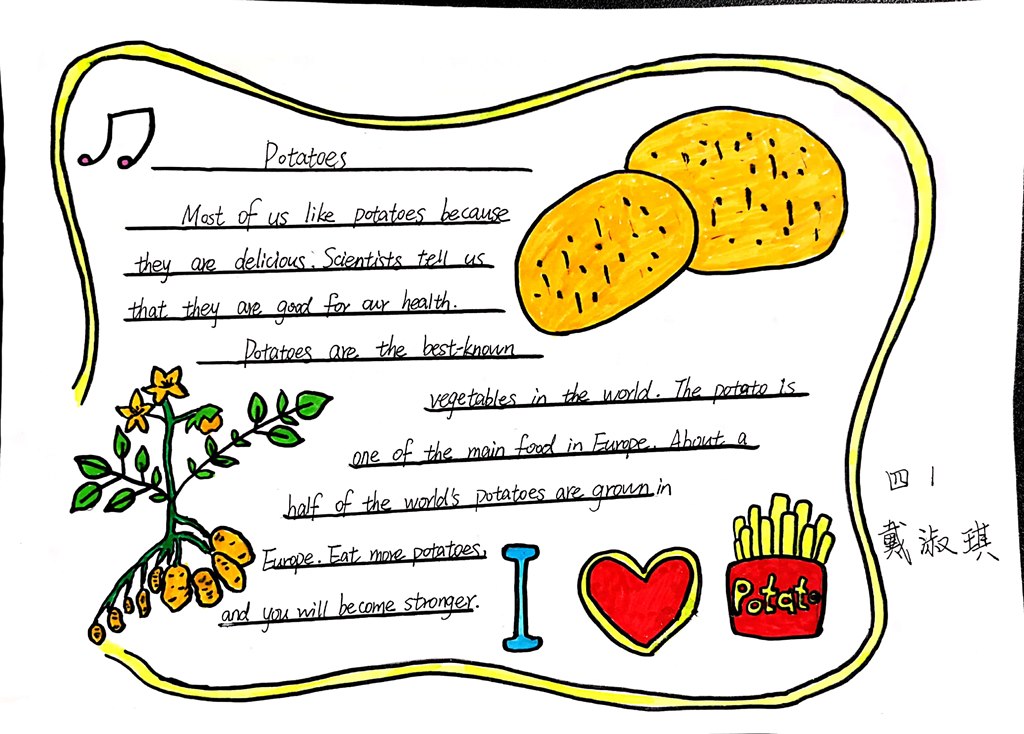 Potatoes
Most of us like potatoes because
they are delicious. Scientists tell us
that they are good for our health.
Potatoes are the best-known
vegetables in the world. The potato is
one of the main food in Europe. About a
half of the world's potatoes are grown in
Europe. Eat more potatoes,
and you will become stronger.
I
Potato
四1
戴淑琪